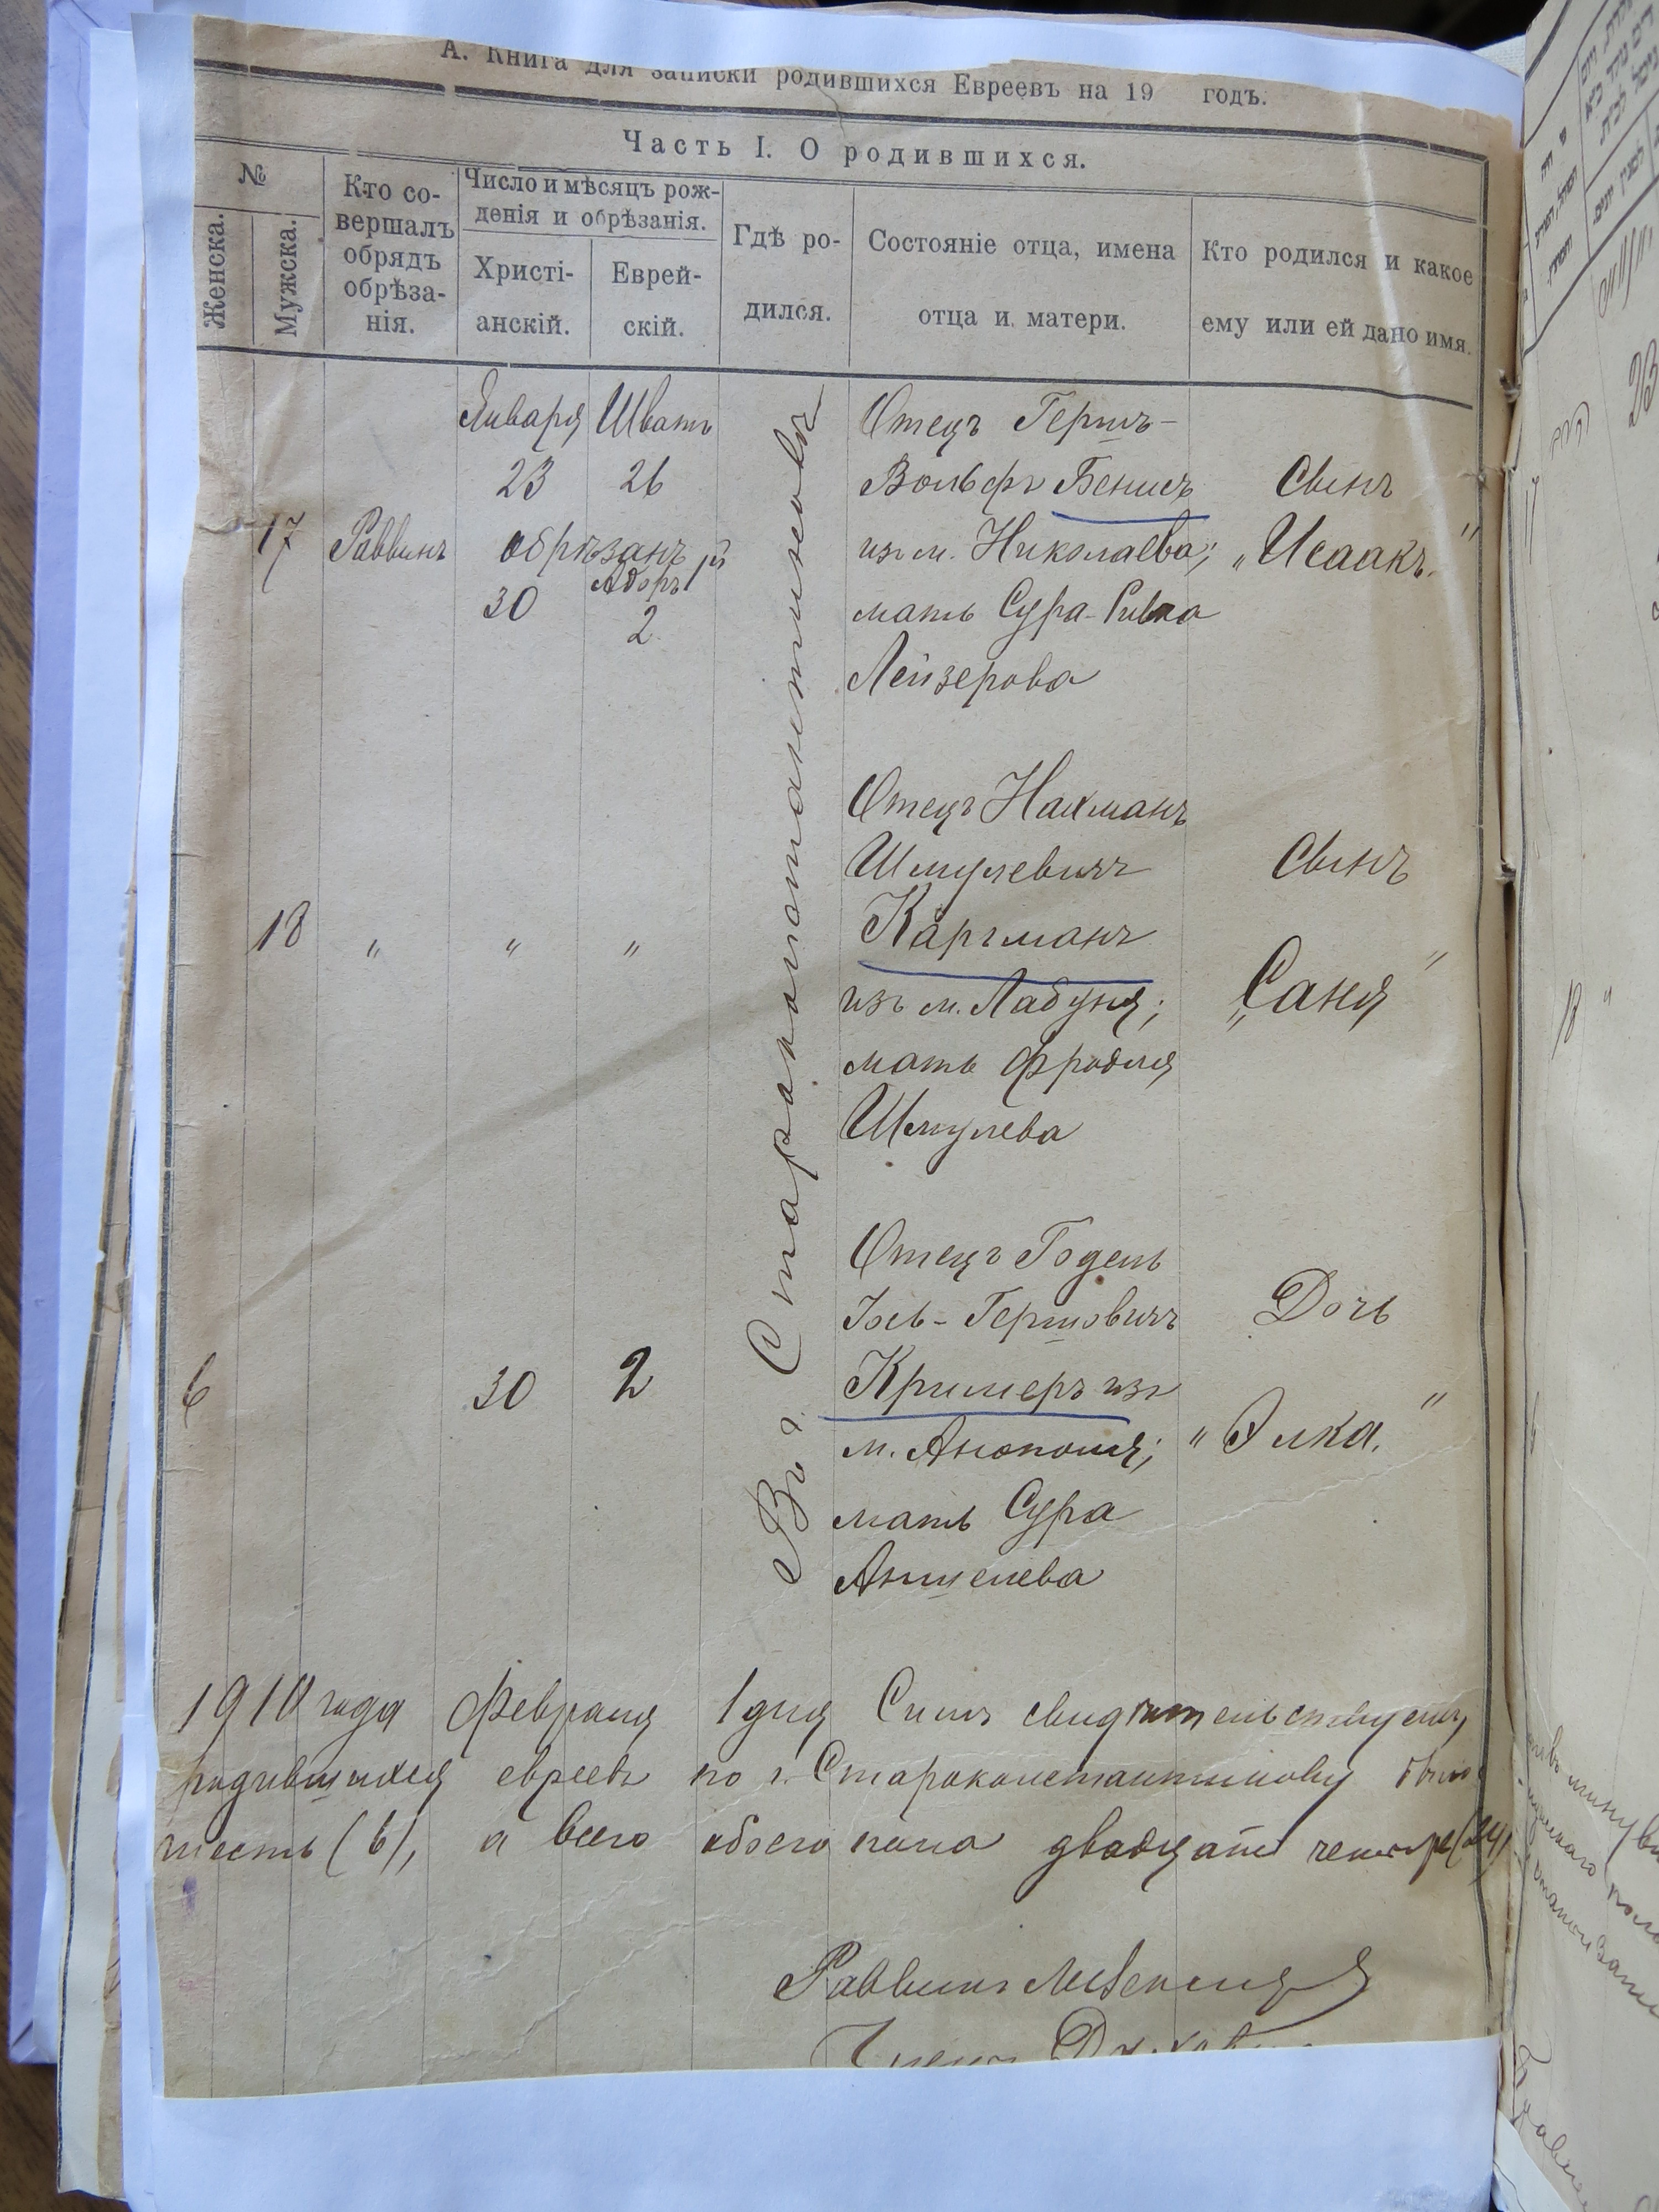 А. Книга для записки родившихся Евреевъ на 19 годъ.
Часть I. О родившихся.
№
Женска.
Мужска.
Кто со-
вершалъ
обрядъ
обрѣза-
нія.
Число и мѣсяцъ рож-
денія и обрѣзанія.
Христі-
анскій.
Еврей-
скій.
Гдѣ ро-
дился.
Состояніе отца, имена
отца и матери.
Кто родился и какое
ему или ей дано имя.
Въ г. Староконстантиновѣ
17
Раввинъ
Января
23
обрѣзанъ
30
Шватъ
26
Адоръ
2
Отецъ Гершъ-
Вольфъ Бенисъ
изъ м. Николаева;
мать Сура-Ривка
Лейзерова
Сынъ
„Исаакъ."
18
"
"
"
Отецъ Нахманъ
Шмулевичъ
Каргманъ
изъ м. Лабуня;
мать Фродля
Шмулева
Сынъ
„Саня"
6
30
2
Отецъ Годель
Іось-Гершовичъ
Кримеръ изъ
м. Аннополя;
мать Сура
Аншелева
Дочь
"Элка."
1910 года Февраля 1 дня Симъ свидѣтельствуемъ
родившихся евреевъ по г. Староконстантинову было
шесть (6), а всего обоего пола двадцать четыре (24)
Раввинъ